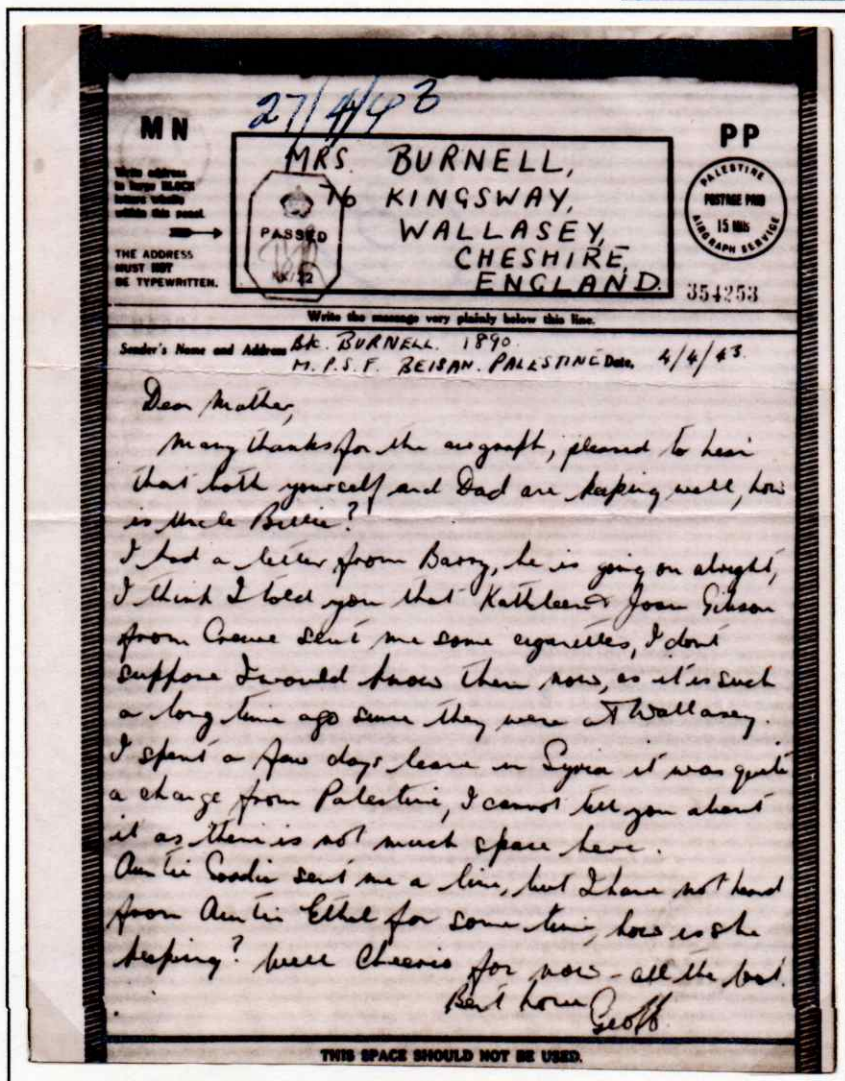 27/4/43
MN
PP
Write address
in large BLOCK
letters wholly
within this panel.
THE ADDRESS
MUST NOT
BE TYPEWRITTEN.
MRS. BURNELL,
76 KINGSWAY,
WALLASEY,
CHESHIRE,
ENGLAND.
PASSED
PALESTINE
POSTAGE PAID
15 Mils
AIRGRAPH SERVICE
354253
Write the message very plainly below this line.
Sender's Name and Address BURNELL. 1890.
M.P.S.F. BEISAN. PALESTINE Date, 4/4/43.
Dear Mother,
Many thanks for the airgraph, pleased to hear
that both yourself and Dad are keeping well, how
is Uncle Billie?
I had a letter from Barry, he is going on alright,
I think I told you that Kathleen & Joan Gibson
from Crewe sent me some cigarettes, I dont
suppose I would know them now, as it is such
a long time ago since they were at Wallasey.
I spent a few days leave in Syria it was quite
a change from Palestine, I cannot tell you about
it as there is not much space here.
Auntie sent me a line, but I have not heard
from Auntie Ethel for some time, how is she
keeping? Well Cheerio for now - all the best.
Best love
Geoff.
THIS SPACE SHOULD NOT BE USED.